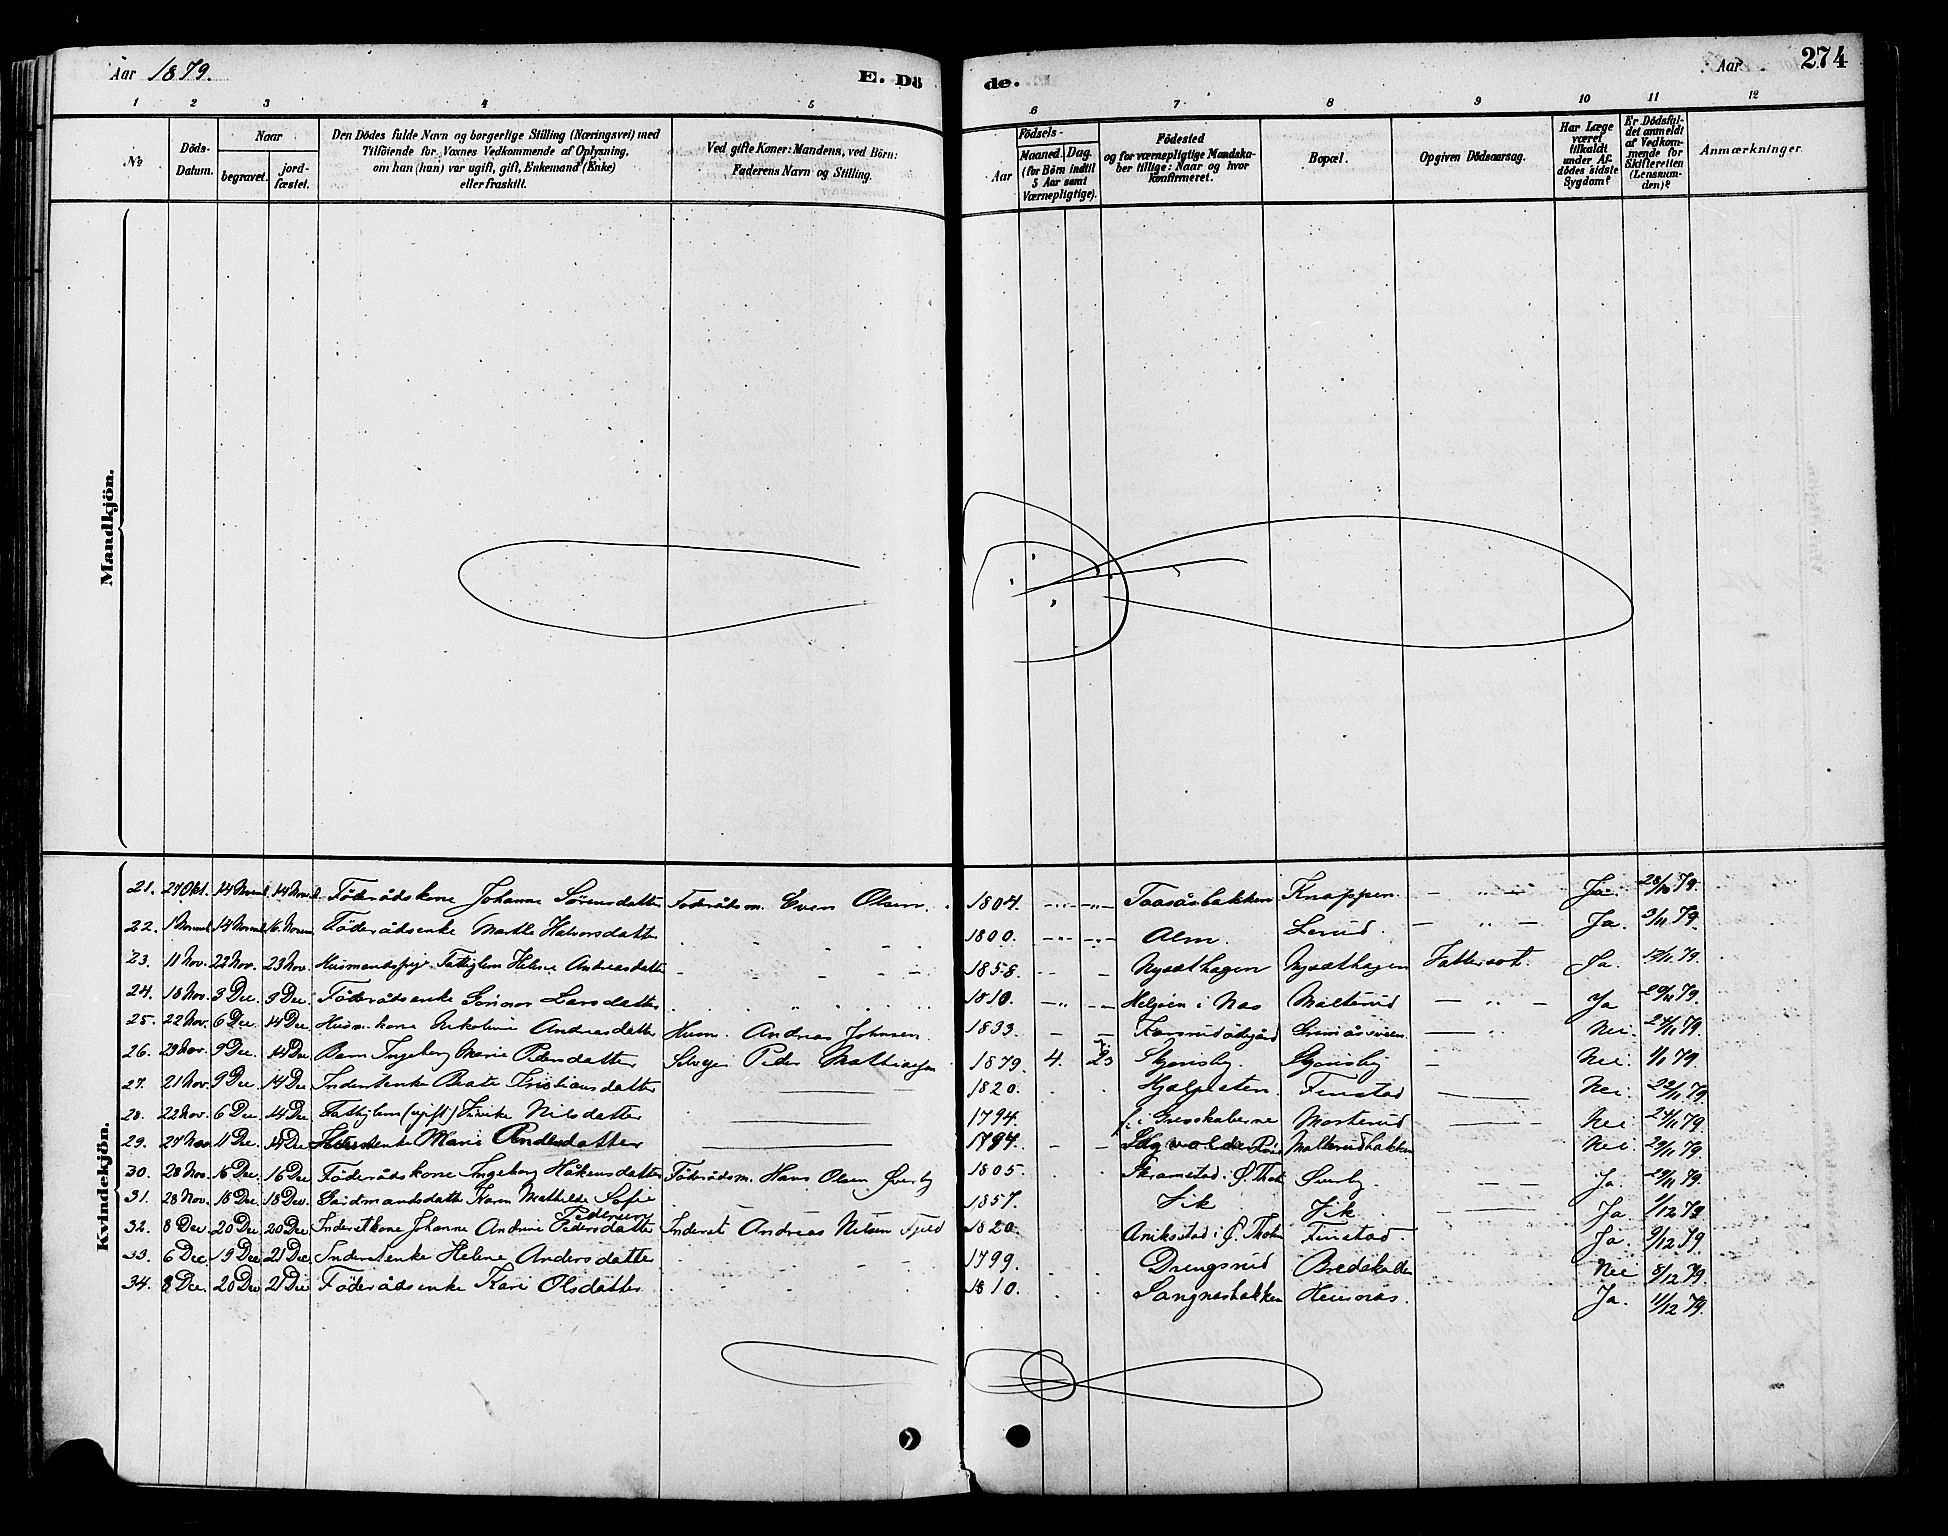 Aar 1879.
E. Dö
de.
Aar
274
1 2 3 4 5 6 7 8 9 10 11 12
№
Döds-
Datum.
Naar
begravet.
jord-
fæstet.
Den Dödes fulde Navn og borgerlige Stilling (Næringsvei) med
Tilföiende for Voxnes Vedkommende af Oplysning,
om han (hun) var ugift, gift, Enkemand (Enke)
eller fraskilt.
Ved gifte Koner: Mandens, ved Börn:
Faderens Navn og Stilling.
Aar
Födsels-
Maaned. Dag.
(for Börn indtil
5 Aar samt
Værnepligtige).
Födested
og for værnepligtige Mandska-
ber tillige: Naar og hvor
konfirmeret.
Bopæl.
Opgiven Dödsaarsag.
Har Læge
været
tilkaldt
under Af-
dödes sidste
Sygdom?
Er Dödsfal-
det anmeldt
af Vedkom-
mende for
Skifteretten
(Lensman-
den)?
Anmærkninger.
Mandkjön.
Kvindekjön.
21. 27 Okt. 14 Novmb. 14 Novmb. Föderådskone Johanne Sörensdatter Föderådsm. Even Olsen. 1804. Taasåsbakken Knappen Ja. 28/10 79.
22. 1 Novmb. 14 Novmb. 16 Novm. Föderådsenke Marthe Halvorsdatter 1800. Alm. Lerud. Ja. 3/11 79.
23. 11 Nov. 22 Nov. 23 Nov. Husmandspige Fattiglem Helene Andreasdatter 1858. Nysæthagen Nysæthagen Ja. 79.
24. 18 Nov. 3 Dec. 3 Dec. Föderådsenke Larsdatter 1810. Helgöen i Næs Malterud Ja 79.
25. 22 Nov. 6 Dec. 14 Dec Husm. kone Nikoline Andreasdatter Husm. Andreas Johnsen. 1833. Nei. 24/11 79.
26. 29 Nov. 9 Dec. 14 Dec. Barn Ingeborg Marie Pedersdatter Selveier Peder Mathiasen 1879. 4. 23 Skjonsby. Skjonsby Nei 79.
27. 21 Nov. 9 Dec. 14 Dec Inderstenke Beate Kristiansdatter 1820. Finstad Nei. 22/11 79.
28. 22 Nov. 6 Dec. 14 Dec Fattiglem (ugift) Nilsdatter 1794. Morterud Nei 24/11 79.
29. 27 Nov 11 Dec. 14 Dec. Marie Andersdatter 1794. Malterudbakken Nei. 79.
30. 28 Nov. 16 Dec. 16 Dec Föderådskone Ingeborg Håkensdatter Föderådsm. Hans Olsen Överby 1805. Skramstad i Ö. Thot. Överby. Ja. 29/11 79.
31. 28 Nov. 18 Dec. 18 Dec. Gårdmandsdatter Karen Mathilde Sofie
Pedersen 1857. Vik Vik. Ja 1/12 79
32. 8 Dec 20 Dec 20 Dec. Inderstkone Johanne Andrine Pedersdatter Inderst Andreas Nilsen Fjeld 1820. i Ö. Thoten Finstad. Ja. 9/12 79.
33. 6 Dec 19 Dec 21 Dec Inderstenke Helene Andersdatter 1799. Drengsrud Bredskallen Nei 8/12 79.
34. 8 Dec. 20 Dec 21 Dec Föderådsenke Kari Olsdatter 1810. Sangnæsbakken Heimnæs. Ja. 11/12 79.